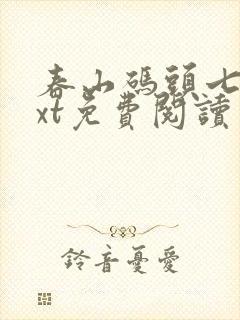 春山碼頭七
xt免費閱讀
鈴音憂愛